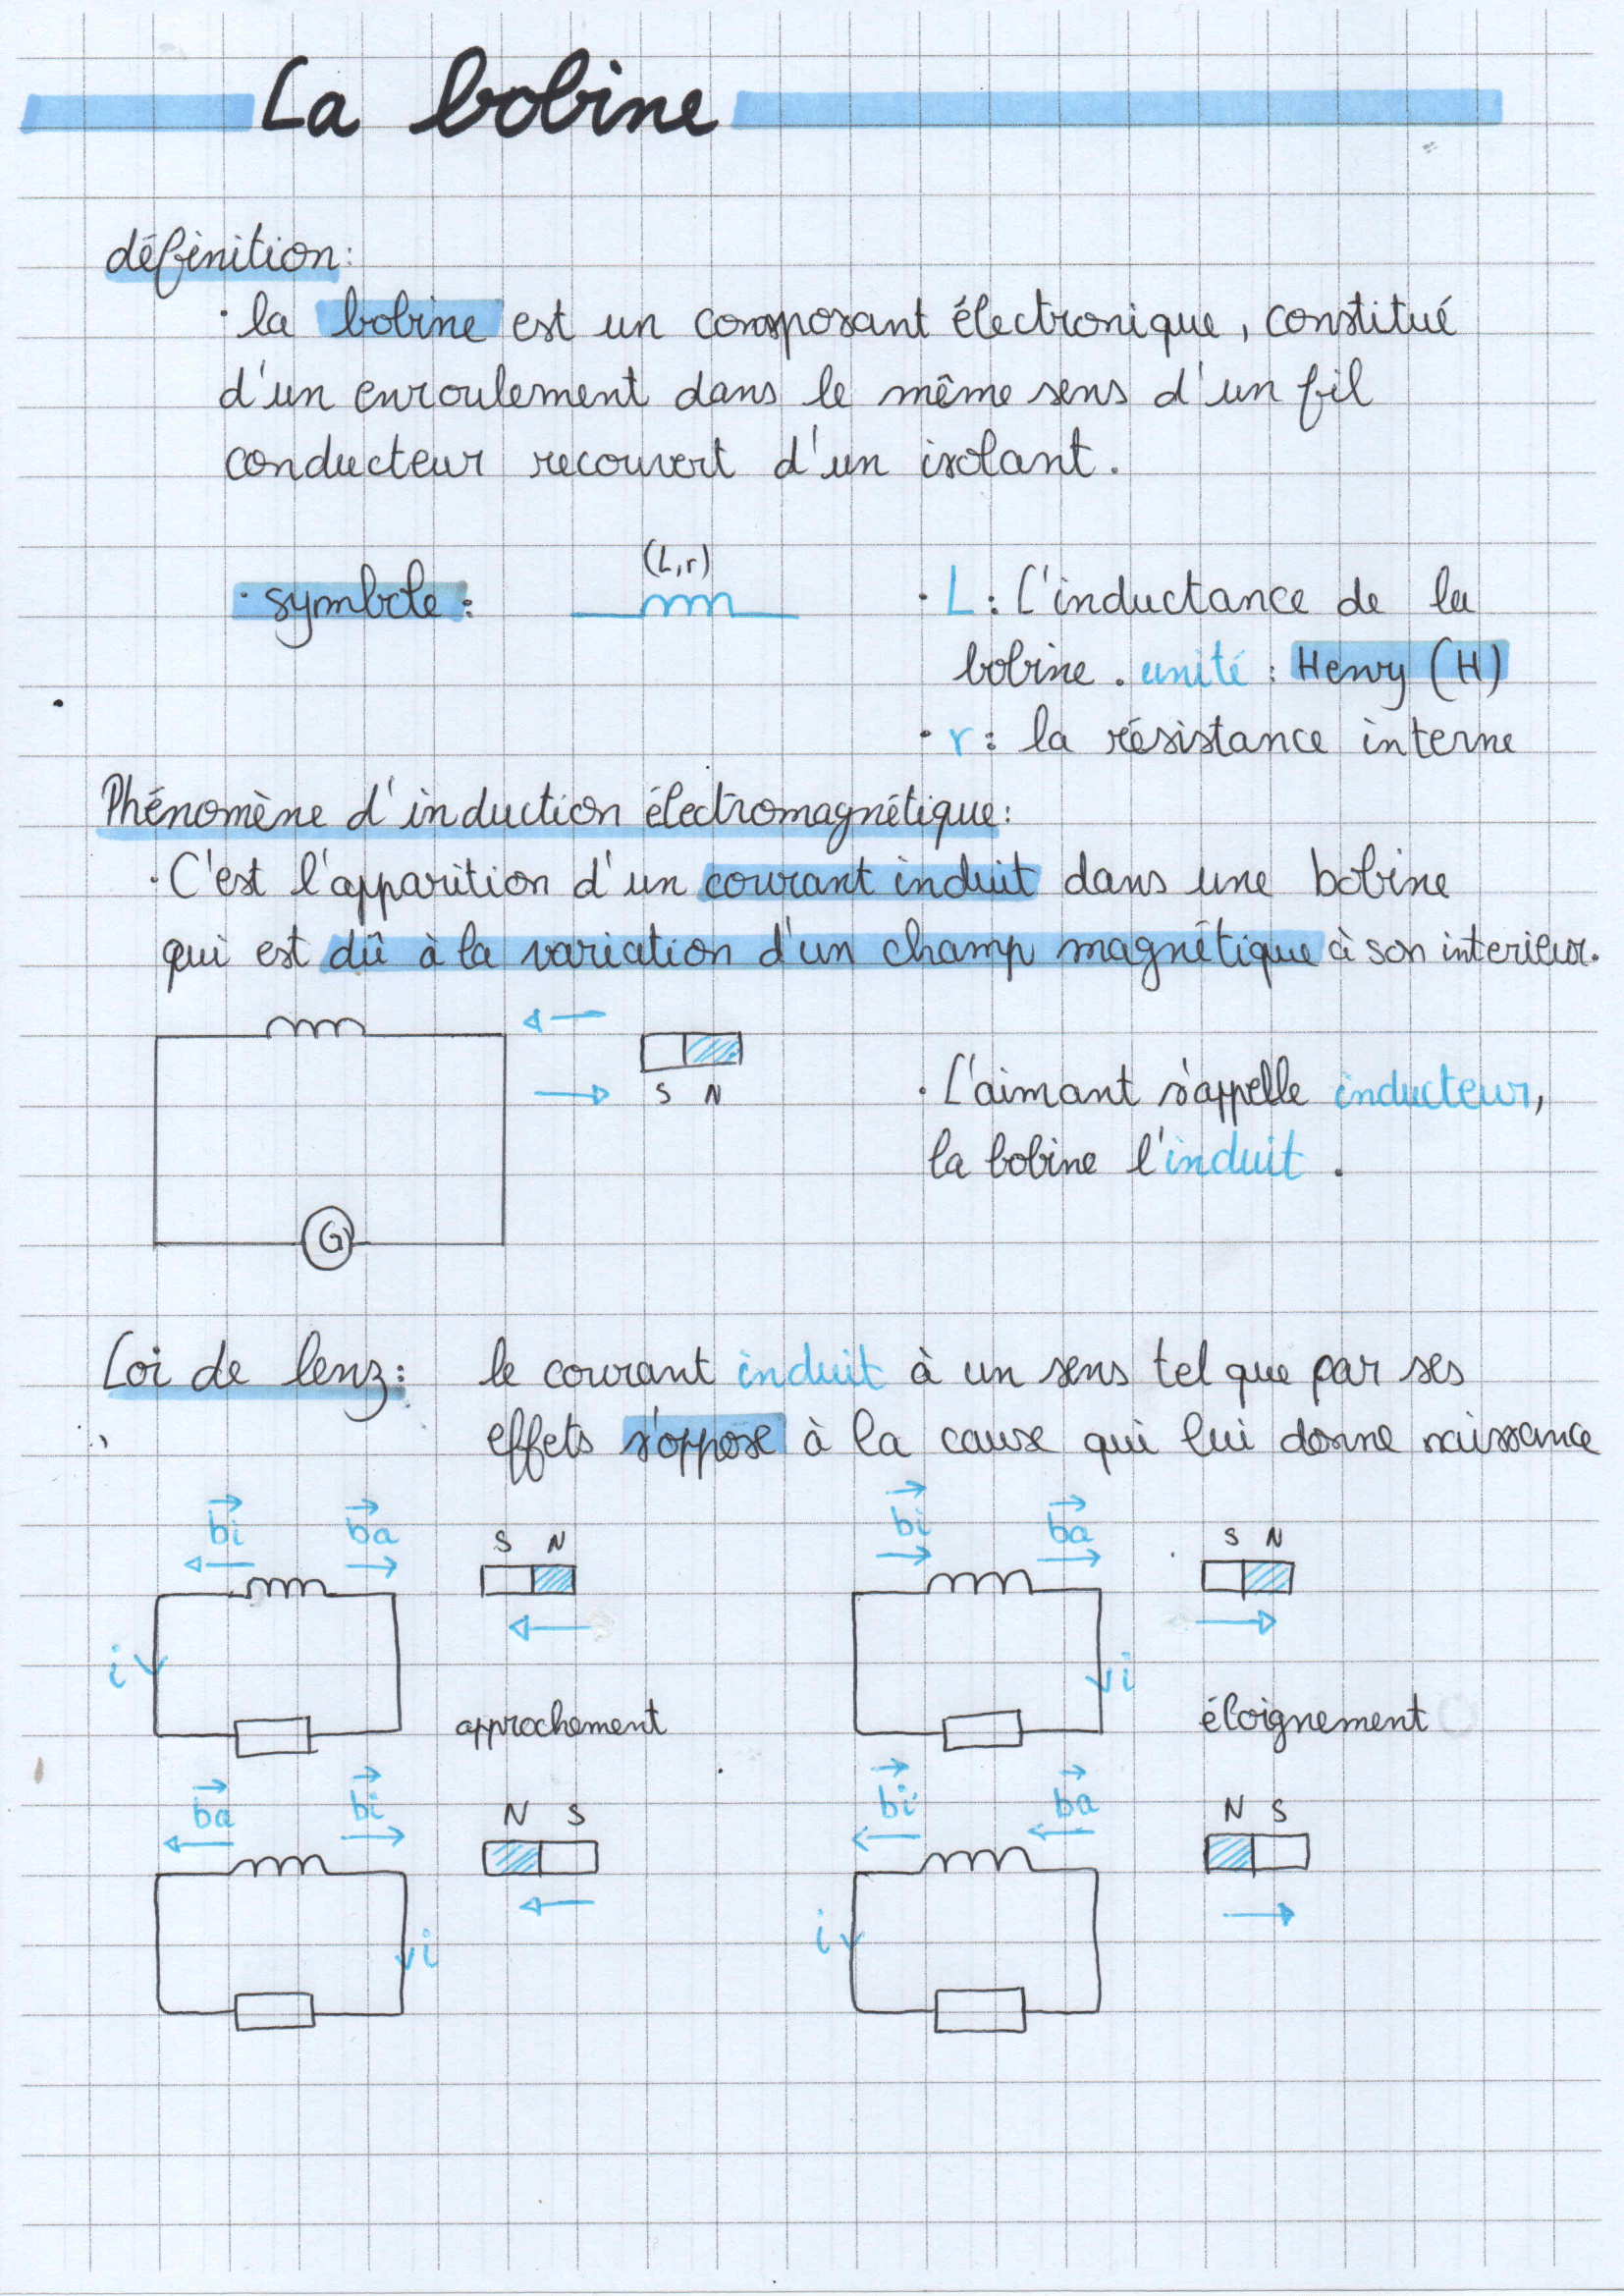 La bobine
définition:
· la bobine est un composant électronique, constitué
d'un enroulement dans le même sens d'un fil
conducteur recouvert d'un isolant.
(L,r)
· symbole:
· L: L'inductance de la
bobine. unité: Henry (H)
· r: la résistance interne
Phénomène d'induction électromagnétique:
· C'est l'apparition d'un courant induit dans une bobine
qui est dû à la variation d'un champ magnétique à son interieur.
S N
· L'aimant s'appelle inducteur,
la bobine l'induit.
G
Loi de lenz: le courant induit à un sens tel que par ses
effets s'oppose à la cause qui lui donne naissance
bi ba S N
i
approchement
bi ba S N
i
éloignement
ba bi N S
i
bi ba N S
i